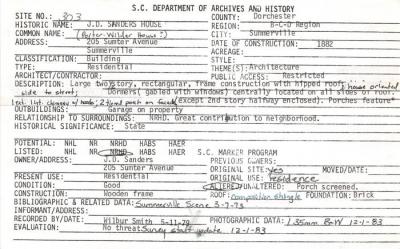 S.C. DEPARTMENT OF ARCHIVES AND HISTORY
SITE NO.: 303 COUNTY: Dorchester
HISTORIC NAME: J.D. SANDERS HOUSE REGION: B-C-D Region
COMMON NAME: (Porter-Wilder House) CITY: Summerville
ADDRESS: 205 Sumter Avenue DATE OF CONSTRUCTION: 1882
Summerville
CLASSIFICATION: Building
TYPE: Residential THEME(S): Architecture
ARCHITECT/CONTRACTOR: PUBLIC ACCESS: Restricted
DESCRIPTION: Large two story, rectangular, frame construction with hipped roof; house oriented
side to street; Dormers (gabled with windows) centrally located on all sides of roof
(except 2nd story halfway enclosed). Porches feature
OUTBUILDINGS: Garage on property
RELATIONSHIP TO SURROUNDINGS: NRHD. Great contribution to neighborhood.
HISTORICAL SIGNIFICANCE: State
POTENTIAL: NHL NR NRHD HABS HAER S.C. MARKER PROGRAM
LISTED: NHL NR NRHD HABS HAER PREVIOUS OWNERS:
OWNER/ADDRESS: J.D. Sanders ORIGINAL SITE: yes MOVED/DATE:
205 Sumter Avenue ORIGINAL USE: residence
PRESENT USE: Residential
CONDITION: Good ALTERED/UNALTERED: Porch screened.
CONSTRUCTION: Wooden frame ROOF: composition shingle FOUNDATION: Brick
BIBLIOGRAPHIC & RELATED DATA: Summerville Scene 3-7-73
INFORMANT/ADDRESS:
RECORDED BY/DATE: Wilbur Smith 5-11-79 PHOTOGRAPHIC DATA: 35mm B&W 12-1-83
EVALUATION: No threat Survey staff update 12-1-83